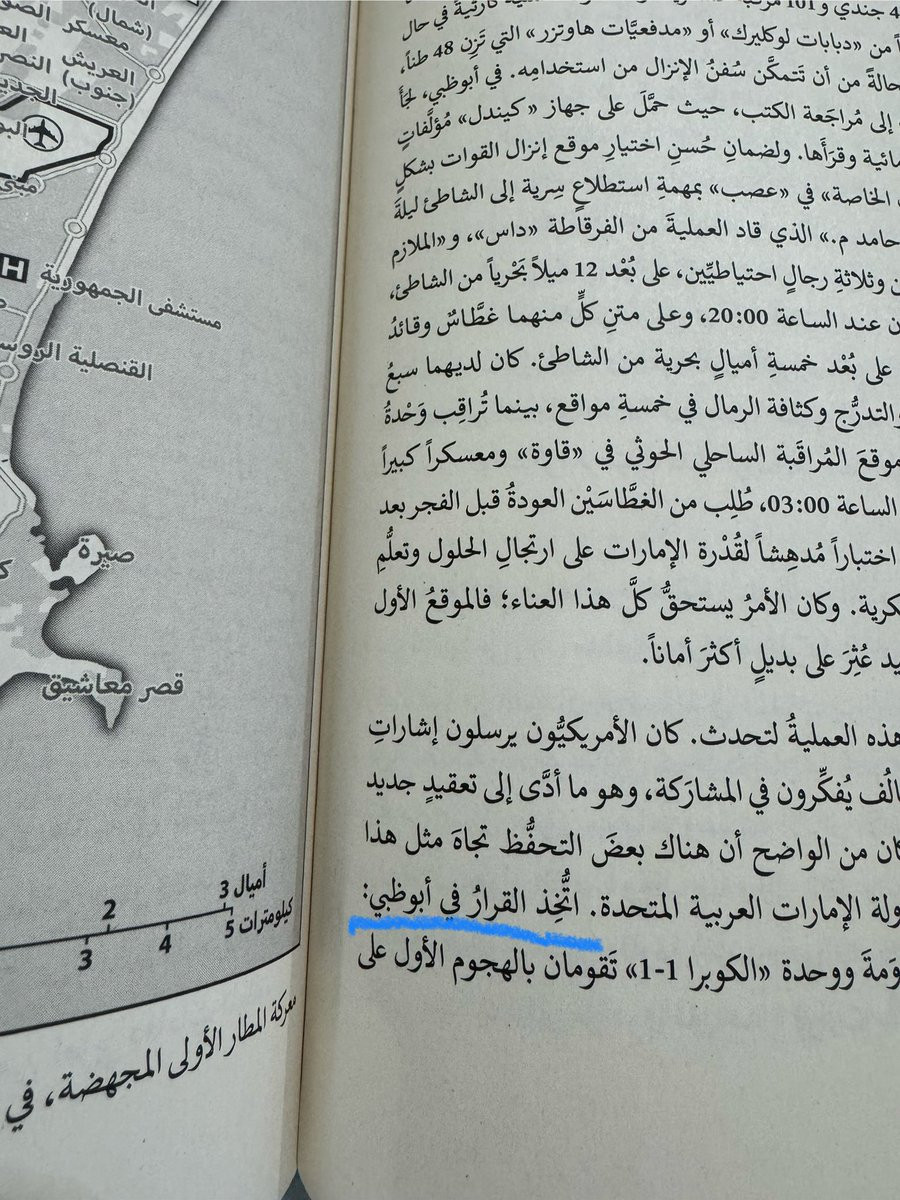 4 جندي و101
اً من «دبابات لوكليرك» أو «مدفعيَّات هاوتزر» التي تَزِن 48 طناً،
حالةً من أن تَتمكَّن سُفنُ الإنزال من استخدامِه. في أبوظبي، لجَأَ
إلى مُراجَعة الكتب، حيث حمَّلَ على جهاز «كيندل» مُؤلَّفاتٍ
مائية وقرَأَها. ولضمانِ حُسنِ اختيارِ موقع إنزال القوات بشكلٍ
الخاصة» في «عصب» بمهمةِ استطلاعٍ سِرية إلى الشاطئ ليلةَ
حامد م.» الذي قاد العمليةَ من الفرقاطة «داس»، و«الملازم
ن وثلاثةِ رجالٍ احتياطيِّين، على بُعْد 12 ميلاً بَحْرياً من الشاطئ،
ن عند الساعة 20:00، وعلى متنِ كلٍّ منهما غطَّاسٌ وقائدُ
على بُعْد خمسةِ أميالٍ بحرية من الشاطئ. كان لديهما سبعُ
والتدرُّج وكثافة الرمال في خمسةِ مواقع، بينما تُراقِب وَحْدةُ
موقعَ المُراقَبة الساحلي الحوثي في «قاوة» ومعسكراً كبيراً
الساعة 03:00، طُلِب من الغطَّاسَيْن العودةُ قبل الفجر بعد
اختباراً مُدهِشاً لقُدْرة الإمارات على ارتجالِ الحلول وتعلُّمِ
كرية. وكان الأمرُ يستحقُّ كلَّ هذا العناء؛ فالموقعُ الأول
يد عُثِرَ على بديلٍ أكثرَ أماناً.
هذه العمليةُ لتحدث. كان الأمريكيُّون يرسلون إشاراتِ
الُف يُفكِّرون في المشارَكة، وهو ما أدَّى إلى تعقيدٍ جديد
كان من الواضح أن هناك بعضَ التحفُّظ تجاهَ مثل هذا
ولة الإمارات العربية المتحدة. اتُّخِذ القرارُ في أبوظبي:
وَمةَ ووحدة «الكوبرا 1-1» تَقومان بالهجوم الأول على
(شمال)
معسكر
العريش
(جنوب)
النصر
مستشفى الجمهورية
H
القنصلية الروس
صيرة
قصر معاشيق
أميال 3
2
كيلومترات 5
4
3
معركة المطار الأولى المجهضة، في